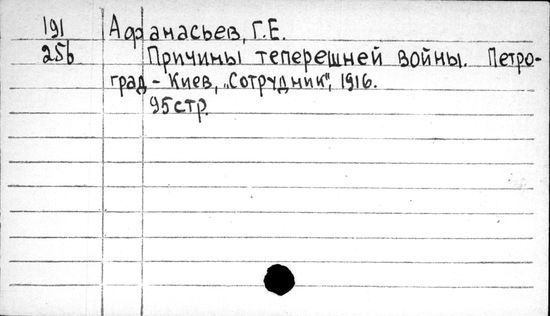 191 Афанасьев, Г.Е.
25b Причины теперешней войны. Петро-
град - Киев, „Сотрудник", 1916.
95стр.